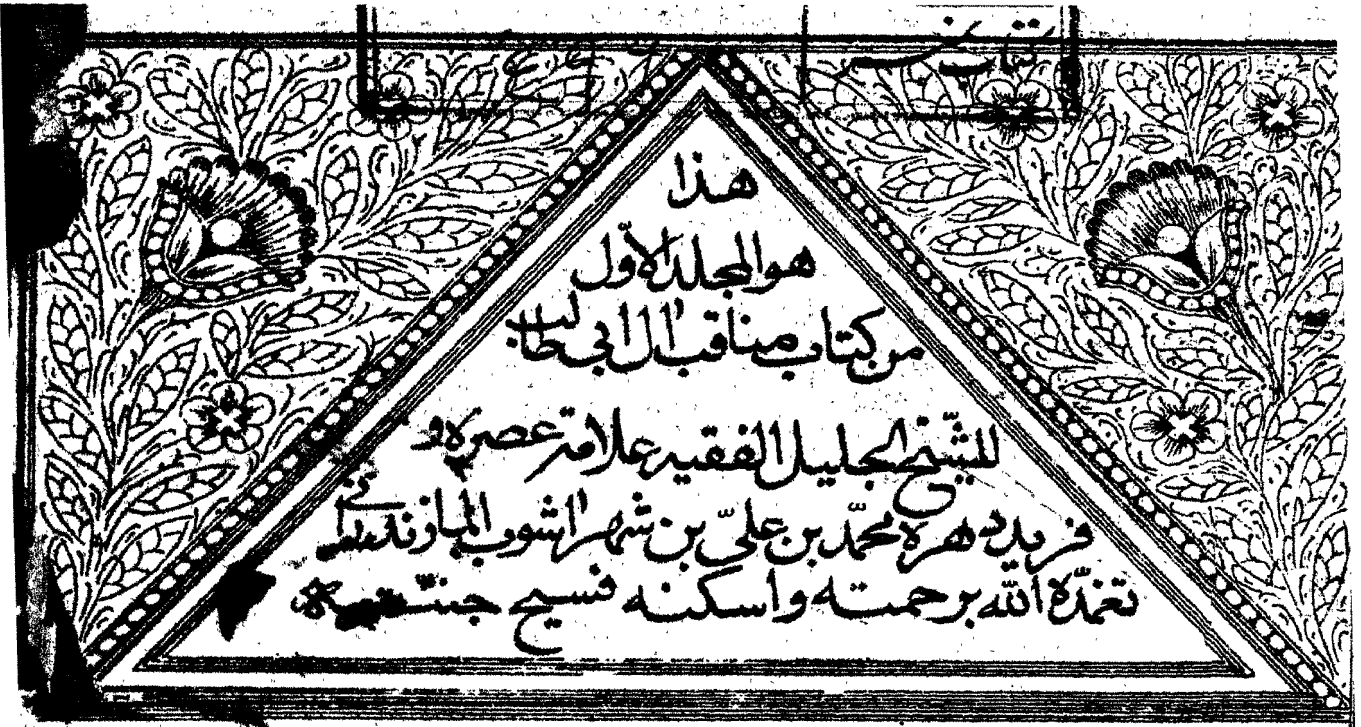 هذا
هو المجلد الأوّل
من كتاب مناقب آل ابی طالب
للشّیخ الجلیل الفقیه علامة عصره و
فرید دهره محمّد بن علیّ بن شهرآشوب المازندرانی
تغمّده الله برحمته واسکنه فسیح جنّته